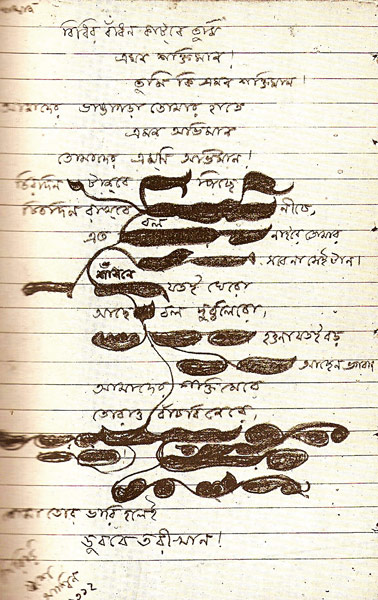 বিধির বাঁধন কাটবে তুমি
এমন শক্তিমান!
তুমি কি এমন শক্তিমান!
আমাদের ভাঙাগড়া তোমার হাতে
এমন অভিমান
তোমাদের এমনি অভিমান!
চিরদিন টানবে পিছে
চিরদিন রাখবে নীচে,
এত বল নাইরে তোমার
সবে না সেই টান।
শাসনে যতই ঘেরো
আছে বল দুর্ব্বলেরো,
হওনা যতই বড়
আছেন ভগবান
আমাদের শক্তি মেরে
তোরাও বাঁচবিনেরে,
বোঝা তোর ভারি হলেই
ডুববে তরীখান!